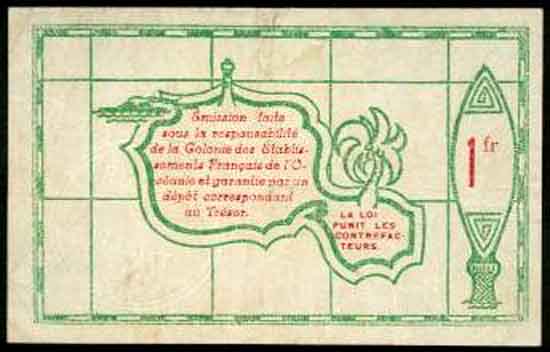 Emission faite
sous la responsabilité
de la Colonie des Etablis-
sements Français de l'O-
céanie et garantie par un
dépôt correspondant
au Trésor.
1 fr
LA LOI
PUNIT LES
CONTREFAC-
TEURS.